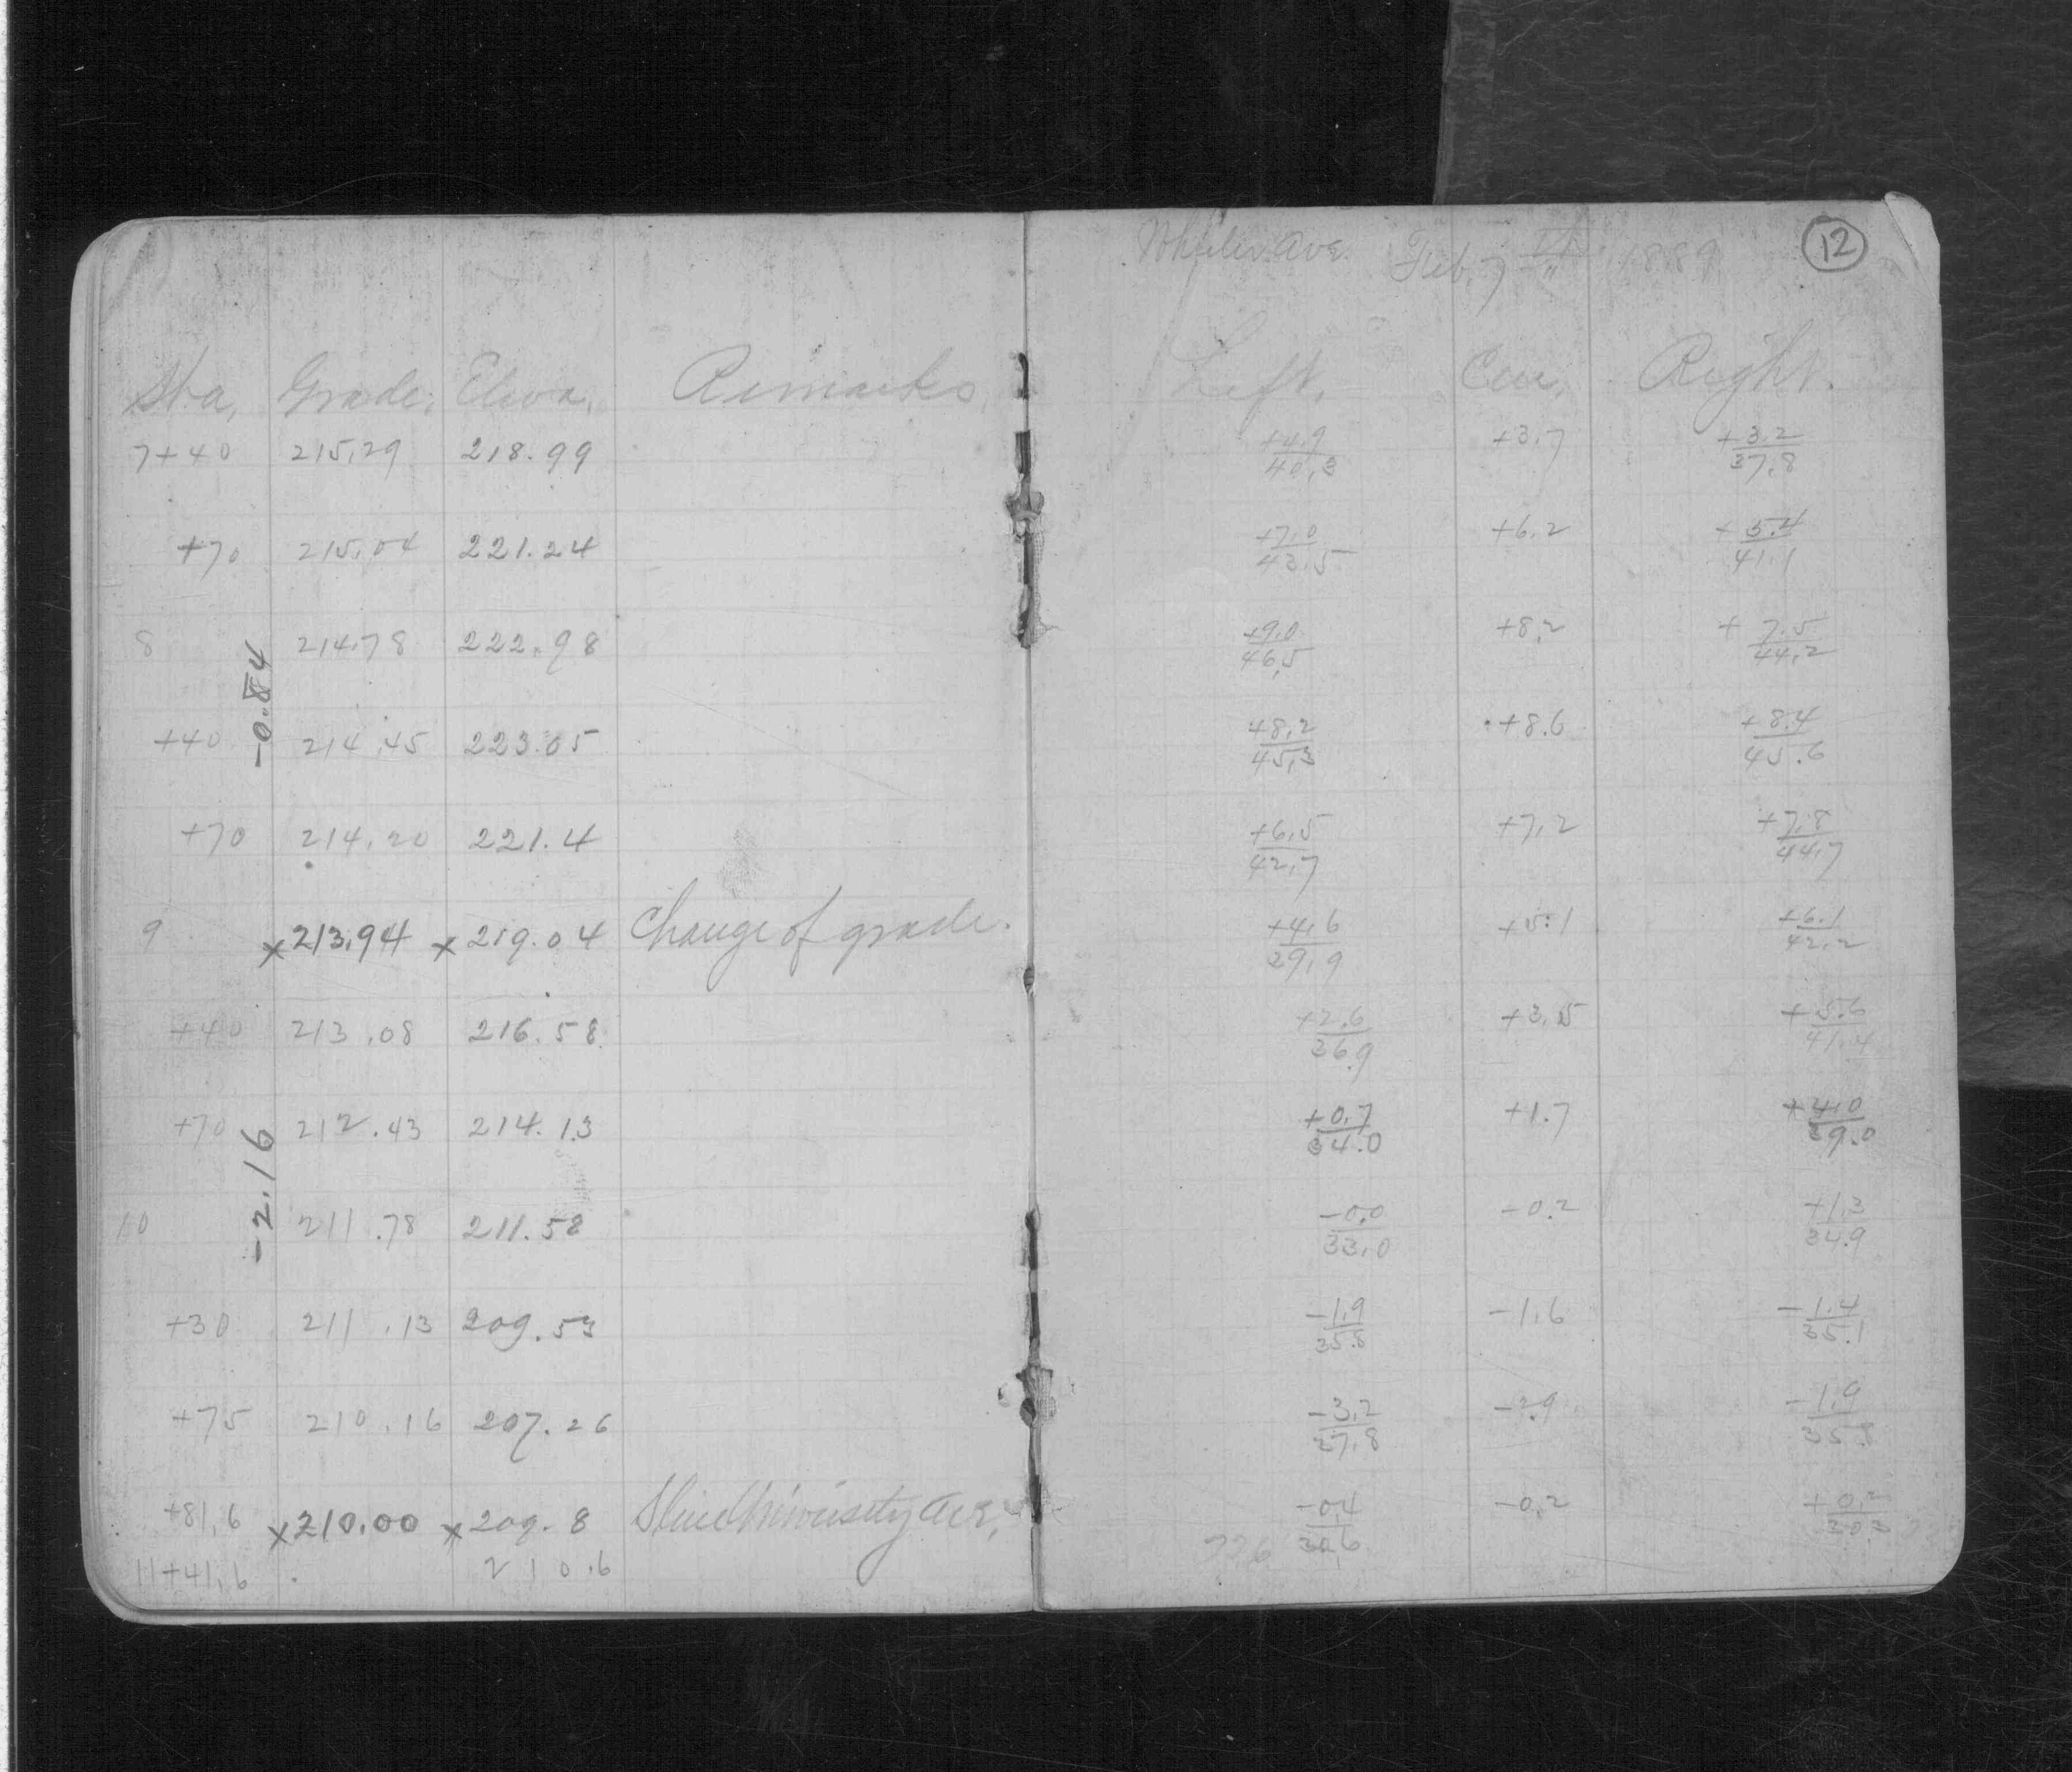 Wheeler Ave. Feb. 7th 1889 12
Sta. Grade. Eleva. Remarks. Left. Cen. Right.
7+40 215.29 218.99 +4.9/40.3 +3.7 +3.2/37.8
+70 215.04 221.24 +7.0/43.5 +6.2 +5.4/41.1
8 214.78 222.98 +9.0/46.5 +8.2 +7.5/44.2
-0.84
+40 214.45 223.05 +8.2/45.3 +8.6 +8.4/45.6
+70 214.20 221.4 +6.5/42.7 +7.2 +7.8/44.7
9 x213.94 x219.04 Change of grade. +4.6/39.9 +5.1 +6.1/42.2
+40 213.08 216.58 +2.6/36.9 +3.5 +5.6/41.4
+70 212.43 214.13 +0.7/34.0 +1.7 +4.0/39.0
-2.16
10 211.78 211.58 -0.0/33.0 -0.2 +1.3/34.9
+30 211.13 209.53 -1.9/35.8 -1.6 -1.4/35.1
+75 210.16 207.26 -3.2/37.8 -2.9 -1.9/35.8
+81.6 x210.00 x209.8 University Ave. -0.4 -0.2 +0.2
11+41.6 210.6